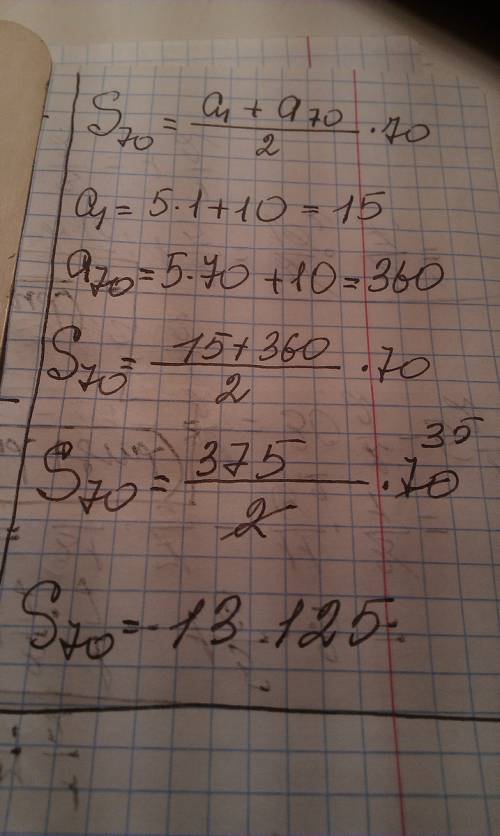 S₇₀ = (a₁ + a₇₀)/2 · 70
a₁ = 5·1+10 = 15
a₇₀ = 5·70 +10 = 360
S₇₀ = (15+360)/2 · 70
S₇₀ = 375/2 · 70 35
S₇₀ = 13.125